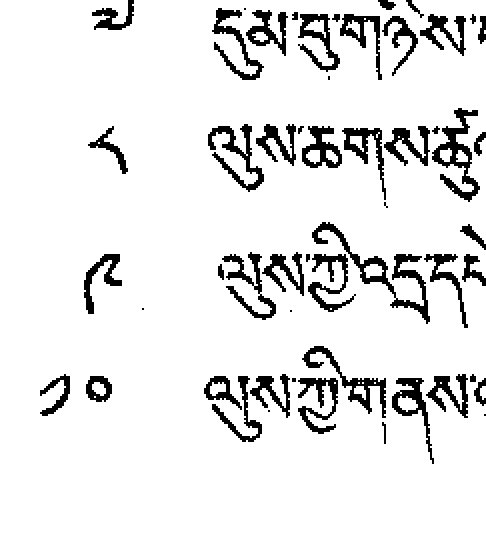 ༧ དུམ་བུ་གཉིས་
༨ ལུས་ཆགས་ཚུ
༩ ལུས་ཀྱི་འདྲ་དཔེ
༡༠ ལུས་ཀྱི་གནས་